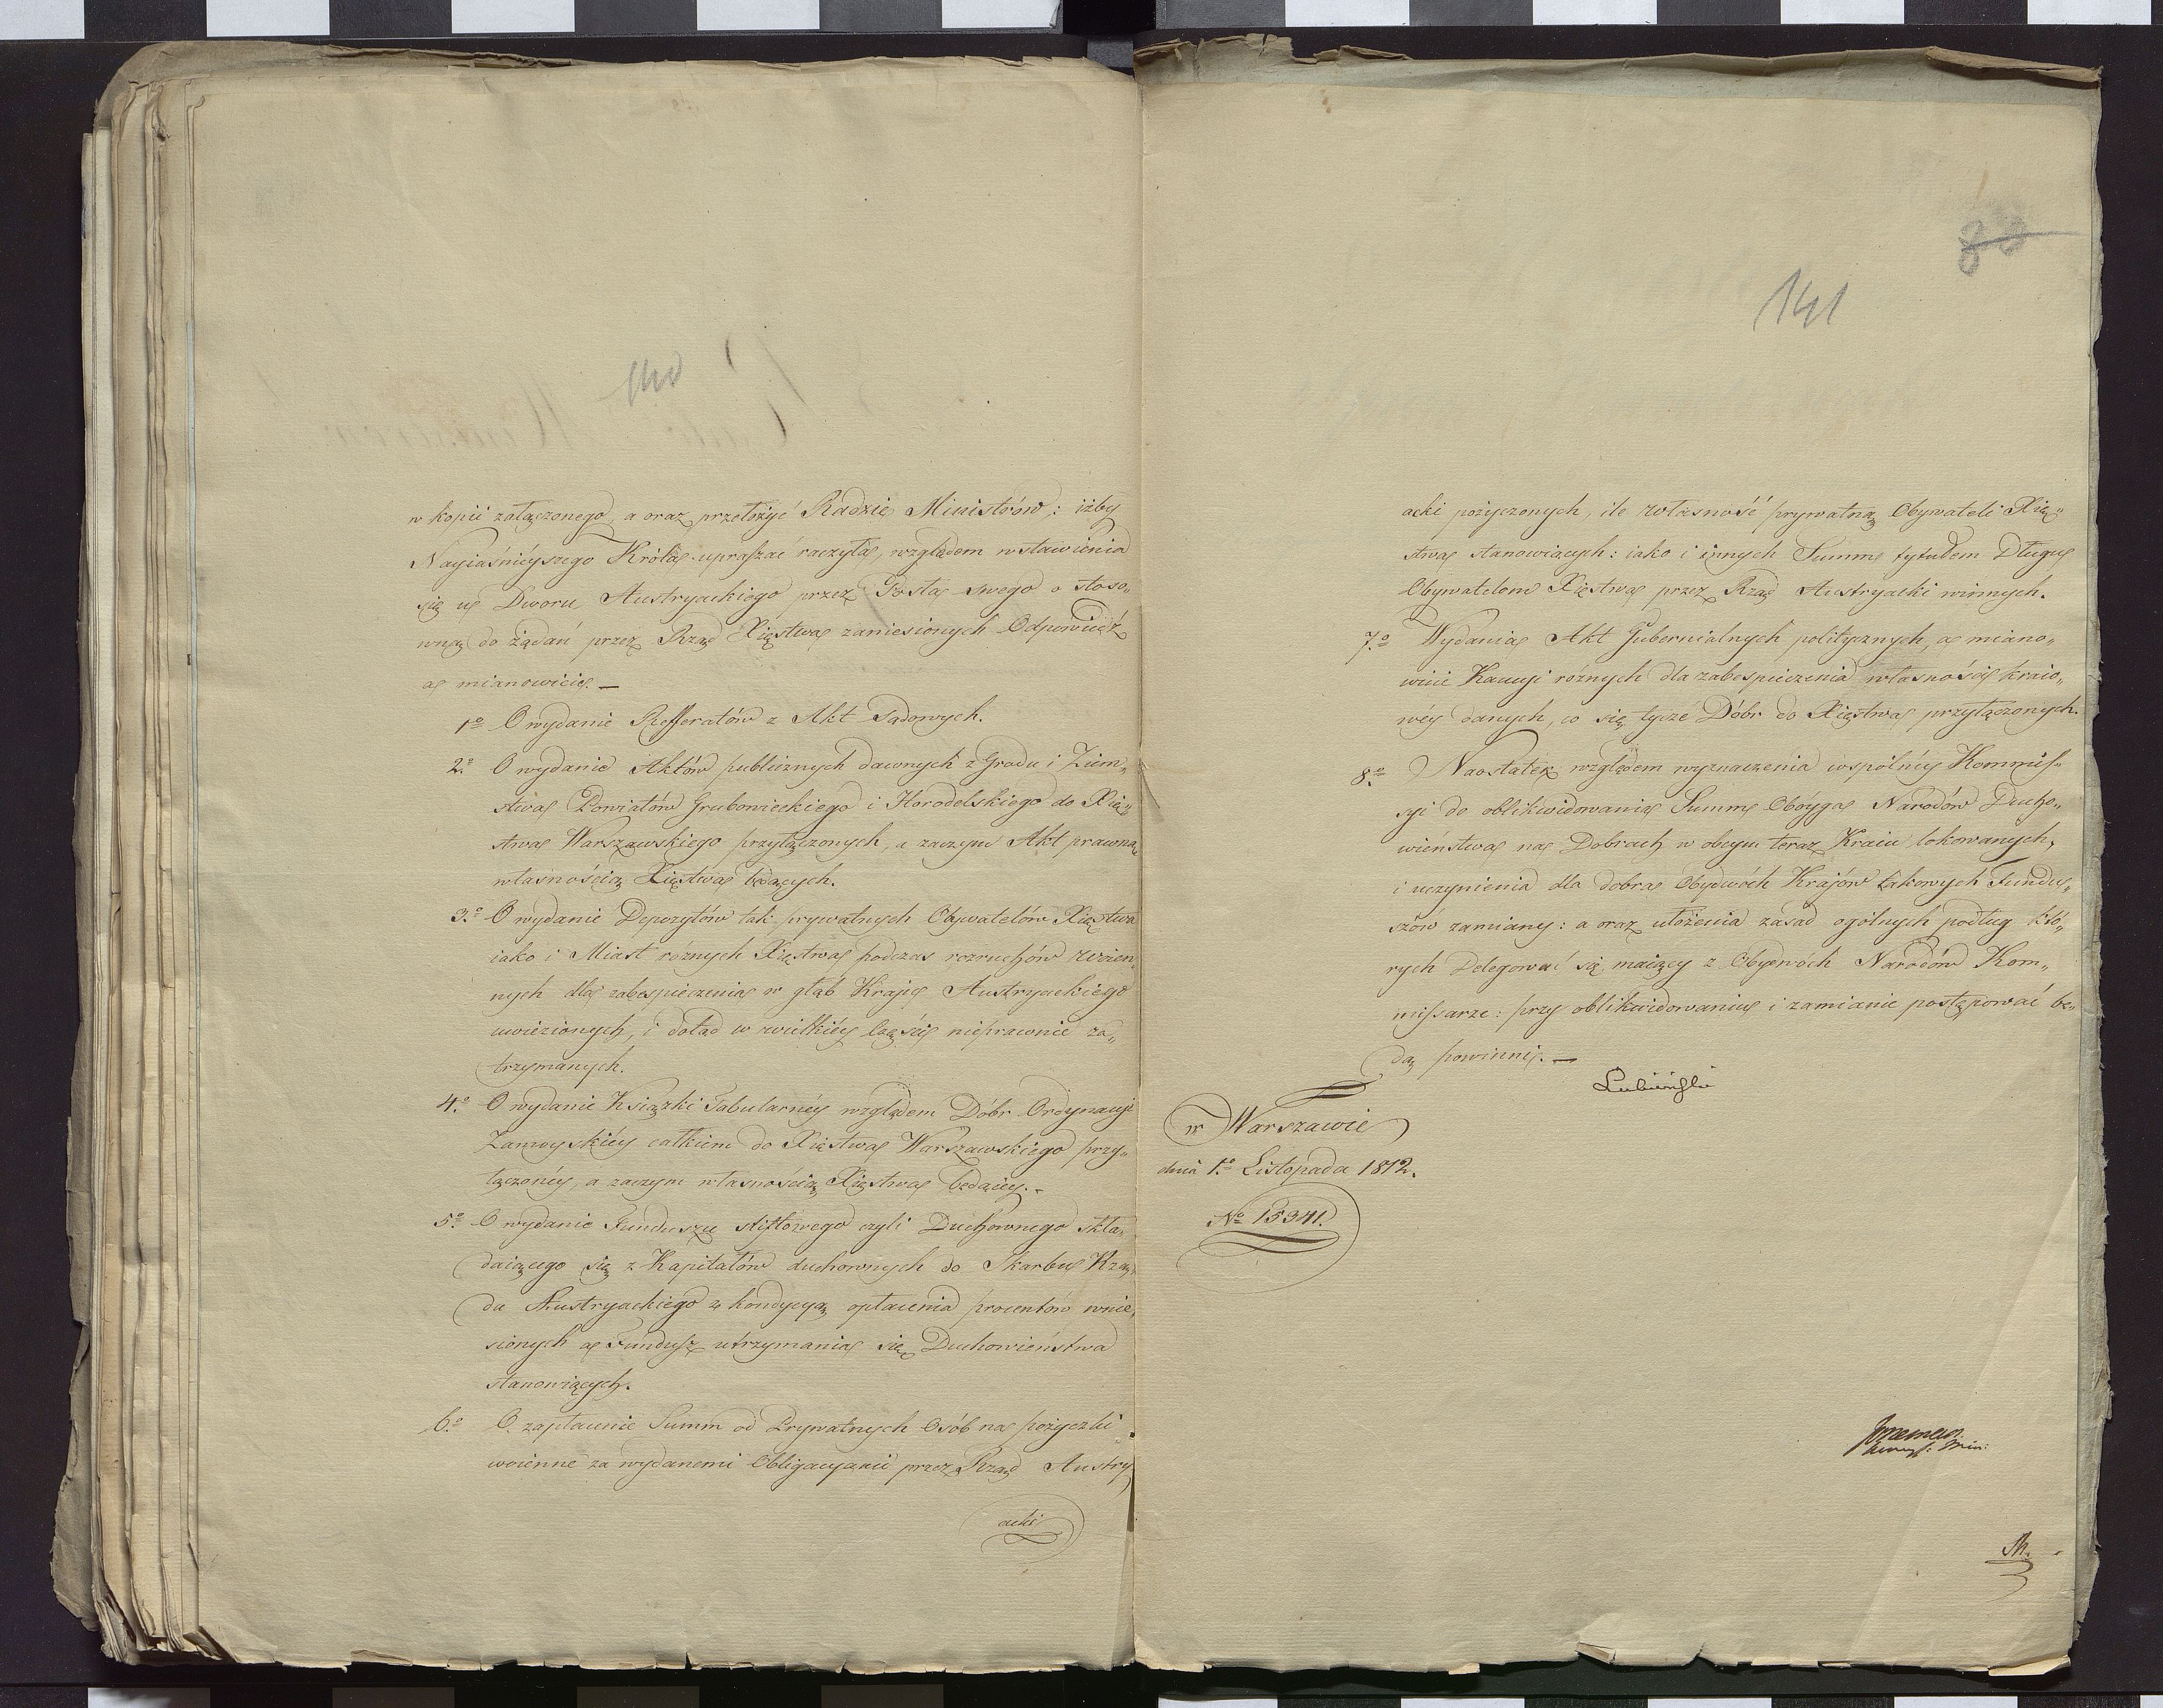 140
w kopii załączonego, a oraz przełożyć Radzie Ministrów: iżby
Nayiaśnieyszego Króla upraszać raczyła, względem wstawienia
się u Dworu Austryackiego przez Posła swego o stoso„
wną do żądań przez Rząd Xięstwa zaniesionych Odpowiedź
a mianowicie. —
1o O wydanie Refferatów z Akt Sądowych.
2o O wydanie Aktów publicznych dawnych z Grodu i Ziem„
stwa Powiatów Grubowieckiego i Horodelskiego do Xię„
stwa Warszawskiego przyłączonych, a zaczym Akt prawną
własnością Xięstwa będących.
3o O wydanie Depozytów tak prywatnych Obywatelów Xięstwa
iako i Miast różnych Xięstwa podczas rozruchów woien„
nych dla zabespieczenia w głąb Kraju Austryackiego
uwiezionych, i dotąd w wielkiéy Części nieprawnie za„
trzymanych.
4o O wydanie Książki Tabularnéy względem Dóbr Ordynacyi
Zamoyskiéy całkiem do Xięstwa Warszawskiego przy„
łączonéy, a zaczym własnością Xięstwa będącéy. —
5o O wydanie Funduszu stiftowego czyli Duchownego skła„
daiącego się z Kapitałów duchownych do Skarbu Rzą„
du Austryackiego z kondycyą opłacenia procentów wnie„
sionych a Fundusz utrzymania się Duchowieństwa
stanowiących.
6o O zapłacenie Summ od Prywatnych Osób na pożyczki
woienne za wydanemi Obligacyami przez Rząd Austry
acki
88
141
acki pożyczonych, ile własność prywatną Obywateli Xię„
stwa stanowiących: iako i innych Summ tytułem Długu
Obywatelom Xięstwa przez Rząd Austryacki winnych.
7o Wydania Akt Gubernialnych politycznych, a miano„
wicie Kaucyi różnych dla zabespieczenia własności kraio„
wéy danych, co się tycze Dóbr do Xięstwa przyłączonych.
8o Naostatek względem wyznaczenia wspólnéy Kommis„
syi do oblikwidowania Summ Obóyga Narodów Ducho„
wieństwa na Dobrach w obcym teraz Kraiu lokowanych,
i uczynienia dla dobra Obydwóch Krajów takowych Fundu„
szów zamiany: a oraz ułożenia zasad ogólnych podług któ„
rych Delegować się maiący z Obydwóch Narodów Kom„
missarze: przy oblikwidowaniu i zamianie postępować bę„
dą powinni. —
Lubieński
w Warszawie
dnia 1o Listopada 1812.
No 15341.